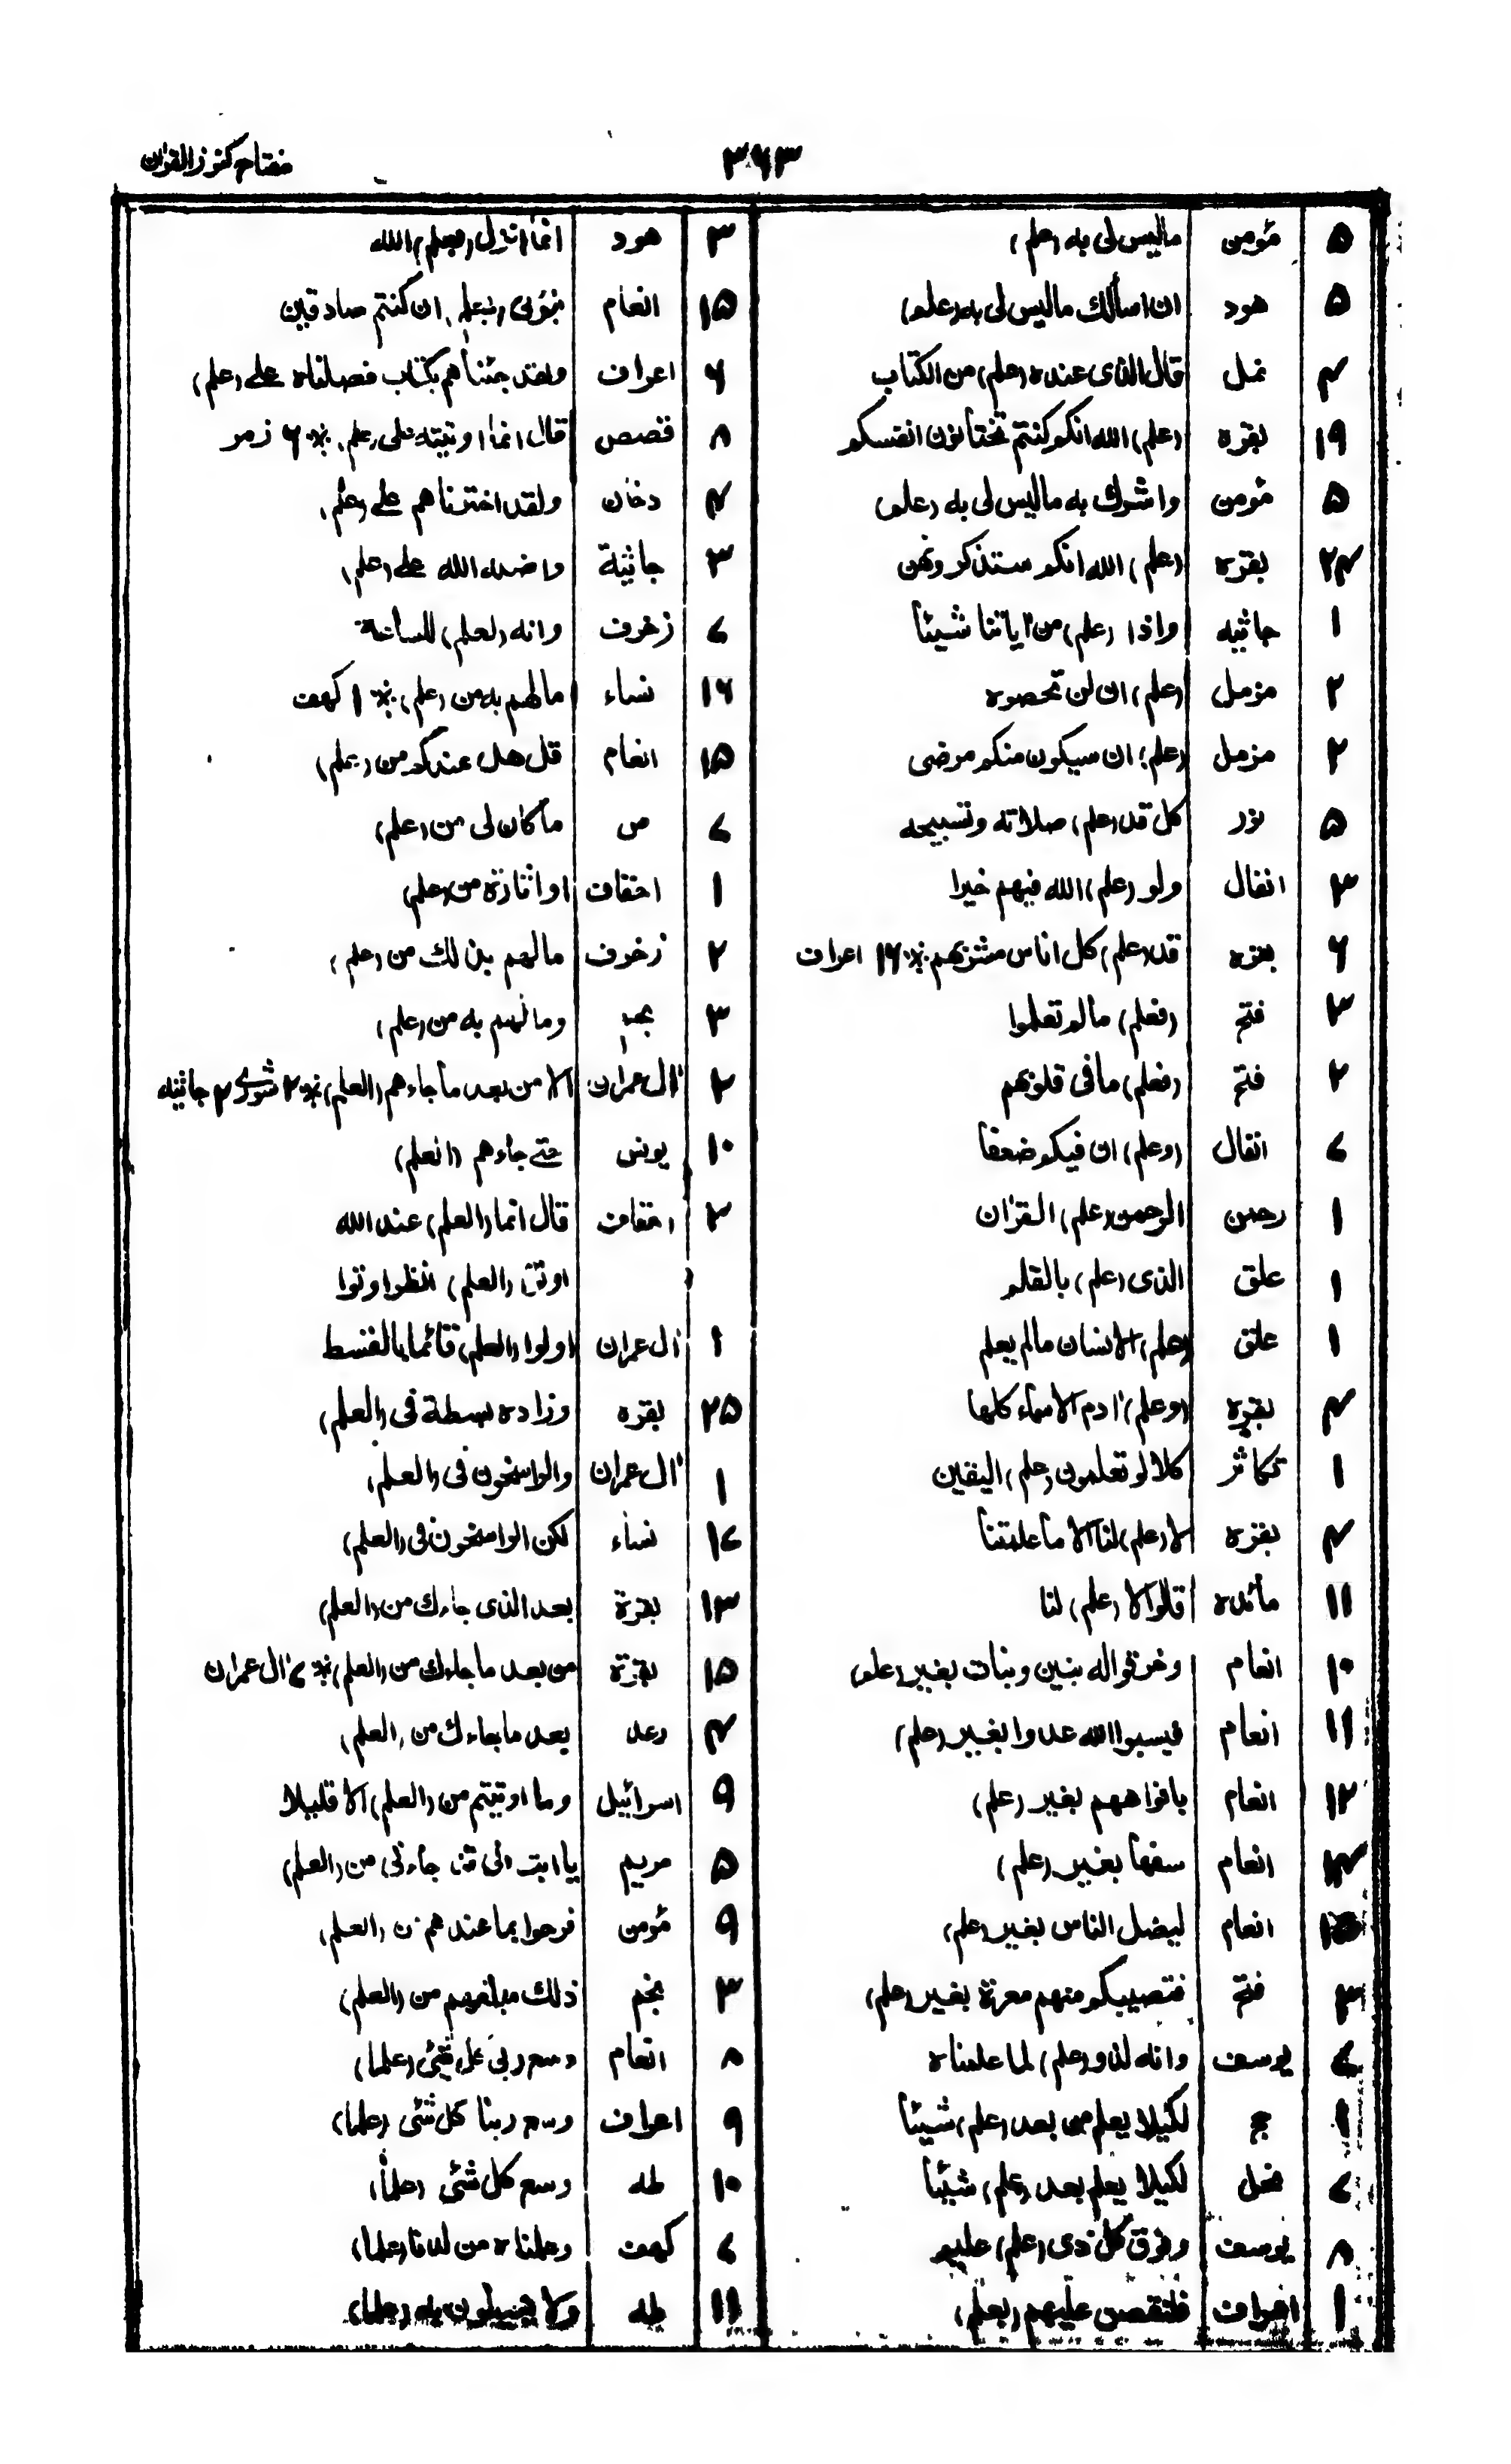 ٣٦٣
مفتاح كنوز القران
٥ مؤمن ماليس لى به (علم)
٥ هود ان اسألك ماليس لى به (علم)
٣ نمل قال الذى عنده (علم) من الكتاب
١٩ بقره (علم) الله انكم كنتم تختانون انفسكم
٥ مؤمن واشرك به ماليس لى به (علم)
٢٣ بقره (علم) الله انكم ستذكرونهن
١ جاثيه واذا (علم) من اياتنا شيئا
٢ مزمل (علم) ان لن تحصوه
٢ مزمل (علم) ان سيكون منكم مرضى
٥ نور كل قد (علم) صلاته وتسبيحه
٣ انفال ولو (علم) الله فيهم خيرا
٦ بقره قد (علم) كل اناس مشربهم ※ ١٦ اعراف
٣ فتح (فعلم) مالم تعلموا
٢ فتح (فعلم) مافى قلوبهم
٧ انفال (وعلم) ان فيكم ضعفا
١ رحمن الرحمن (علم) القران
١ علق الذى (علم) بالقلم
١ علق (علم) الانسان مالم يعلم
٤ بقره (وعلم) ادم الاسماء كلها
١ تكاثر كلا لو تعلمون (علم) اليقين
٤ بقره لا (علم) لنا الا ما علمتنا
١١ مائده قالوا لا (علم) لنا
١٠ انعام وخرقوا له بنين وبنات بغير (علم)
١١ انعام فيسبوا الله عدوا بغير (علم)
١٢ انعام باهوائهم بغير (علم)
انعام سفها بغير (علم)
انعام ليضل الناس بغير (علم)
٣ فتح فتصيبكم منهم معرة بغير (علم)
يوسف وانه لذو (علم) لما علمناه
١ حج لكيلا يعلم من بعد (علم) شيئا
٧ نحل لكيلا يعلم بعد (علم) شيئا
٨ يوسف وفوق كل ذى (علم) عليم
١ اعراف فلنقصن عليهم (بعلم)
٣ هود انما انزل (بعلم) الله
١٥ انعام نبؤنى (بعلم) ان كنتم صادقين
٦ اعراف ولقد جئناهم بكتاب فصلناه على (علم)
٨ قصص قال انما اوتيته على (علم) ※ ٦ زمر
٤ دخان ولقد اخترناهم على (علم)
٣ جاثية واضله الله على (علم)
٧ زخرف وانه (لعلم) للساعة
١٦ نساء مالهم به من (علم) ※ ١ كهف
١٥ انعام قل هل عندكم من (علم)
٧ ص ماكان لى من (علم)
١ احقاف او اثارة من (علم)
٢ زخرف مالهم بذلك من (علم)
٣ نجم ومالهم به من (علم)
٢ ال عمران الا من بعد ماجاءهم (العلم) ※ ٢ شورى ٢ جاثيه
١٠ يونس حتى جاءهم (العلم)
٣ احقاف قال انما (العلم) عند الله
اوتى (العلم) انظر اوتوا
١ ال عمران اولوا (العلم) قائما بالقسط
٢٥ بقره وزاده بسطة فى (العلم)
١ ال عمران والراسخون فى (العلم)
١٧ نساء لكن الراسخون فى (العلم)
١٣ بقرة بعد الذى جاءك من (العلم)
١٥ بقرة من بعد ماجاءك من (العلم) ※ ٧ ال عمران
٤ رعد بعد ماجاءك من (العلم)
٩ اسرائيل وما اوتيتم من (العلم) الا قليلا
٥ مريم يا ابت انى قد جاءنى من (العلم)
٩ مؤمن فرحوا بما عندهم من (العلم)
٣ نجم ذلك مبلغهم من (العلم)
٨ انعام وسع ربى كل شئ (علما)
٩ اعراف وسع ربنا كل شئ (علما)
١٠ طه وسع كل شئ (علما)
٧ كهف وعلمناه من لدنا (علما)
١١ طه ولا يحيطون به (علما)